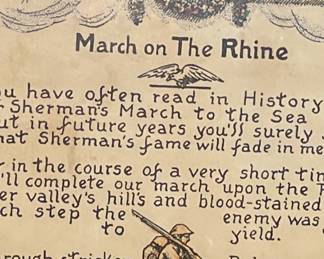 March on The Rhine
ou have often read in History
Sherman's March to the Sea
ut in future years you'll surely
hat Sherman's fame will fade in me
in the course of a very short tim
'll complete our march upon the
er valley's hills and blood-stained
ch step the enemy was
to yield.